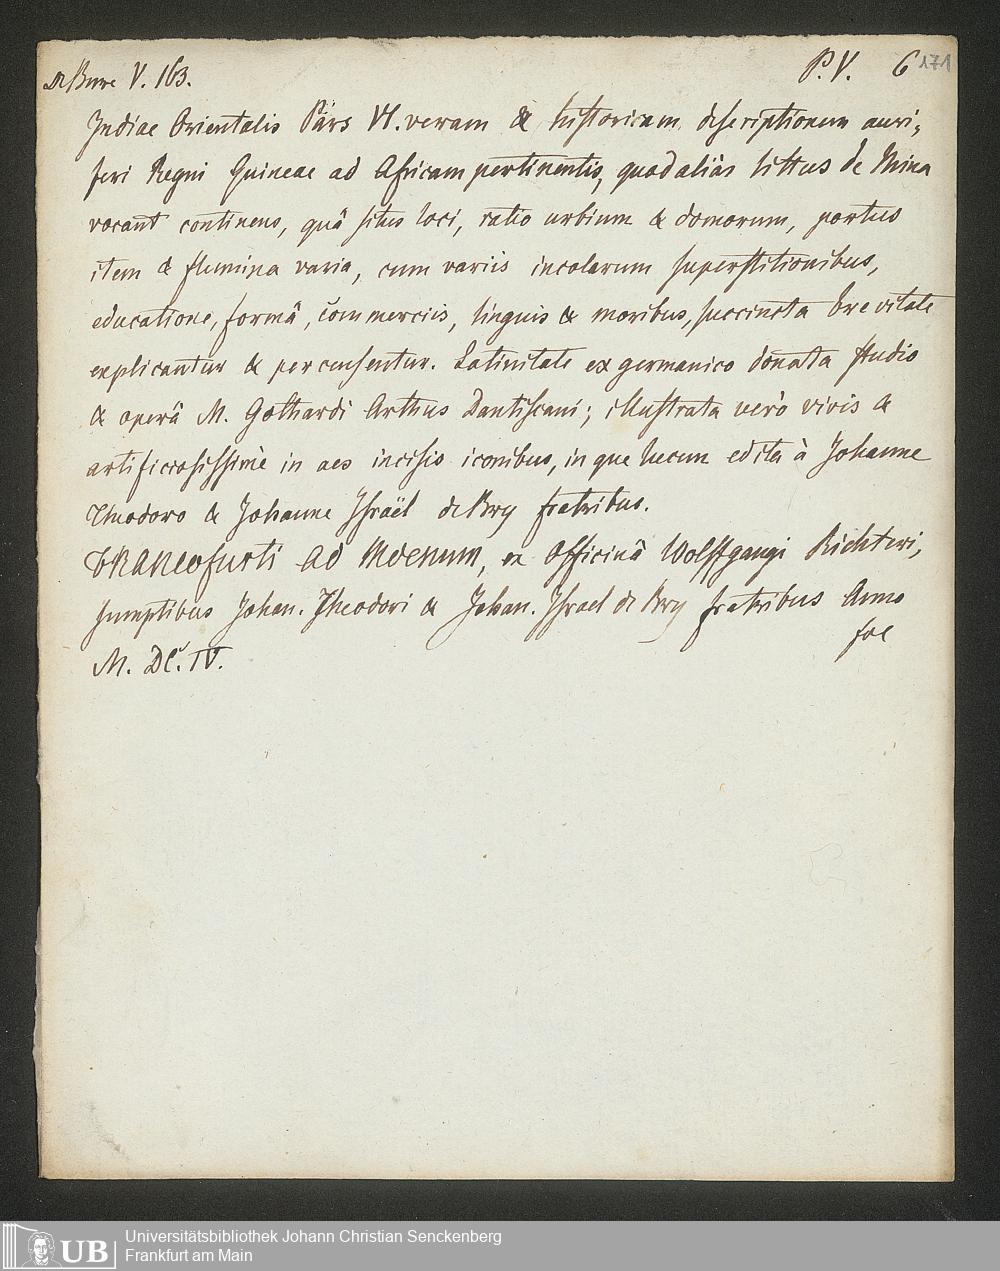 De Bure V. 163. P. V. 6 171
Indiae Orientalis Pars VI. veram & historicam descriptionem auri,
feri Regni Guineae ad Africam pertinentis, quod alias littus de Mina
vocant continens, quâ situs loci, ratio urbium & domorum, portus
item & flumina varia, cum variis incolarum superstitionibus,
educatione, formâ, commerciis, linguis & moribus, succincta brevitate
explicantur & percensentur. Latinitate ex germanico donata studio
& operâ M. Gothardi Arthus Dantiscani; illustrata verò vivis &
artificiosissimè in aes incisis iconibus, inque lucem edita à Johanne
Theodoro & Johanne Israël de Bry fratribus.
Francofurti ad Moenum, ex Officinâ Wolffgangi Richteri,
sumptibus Johan. Theodori & Johan. Israel de Bry fratribus Anno
M. DC. IV. fol
UB Universitätsbibliothek Johann Christian Senckenberg
Frankfurt am Main